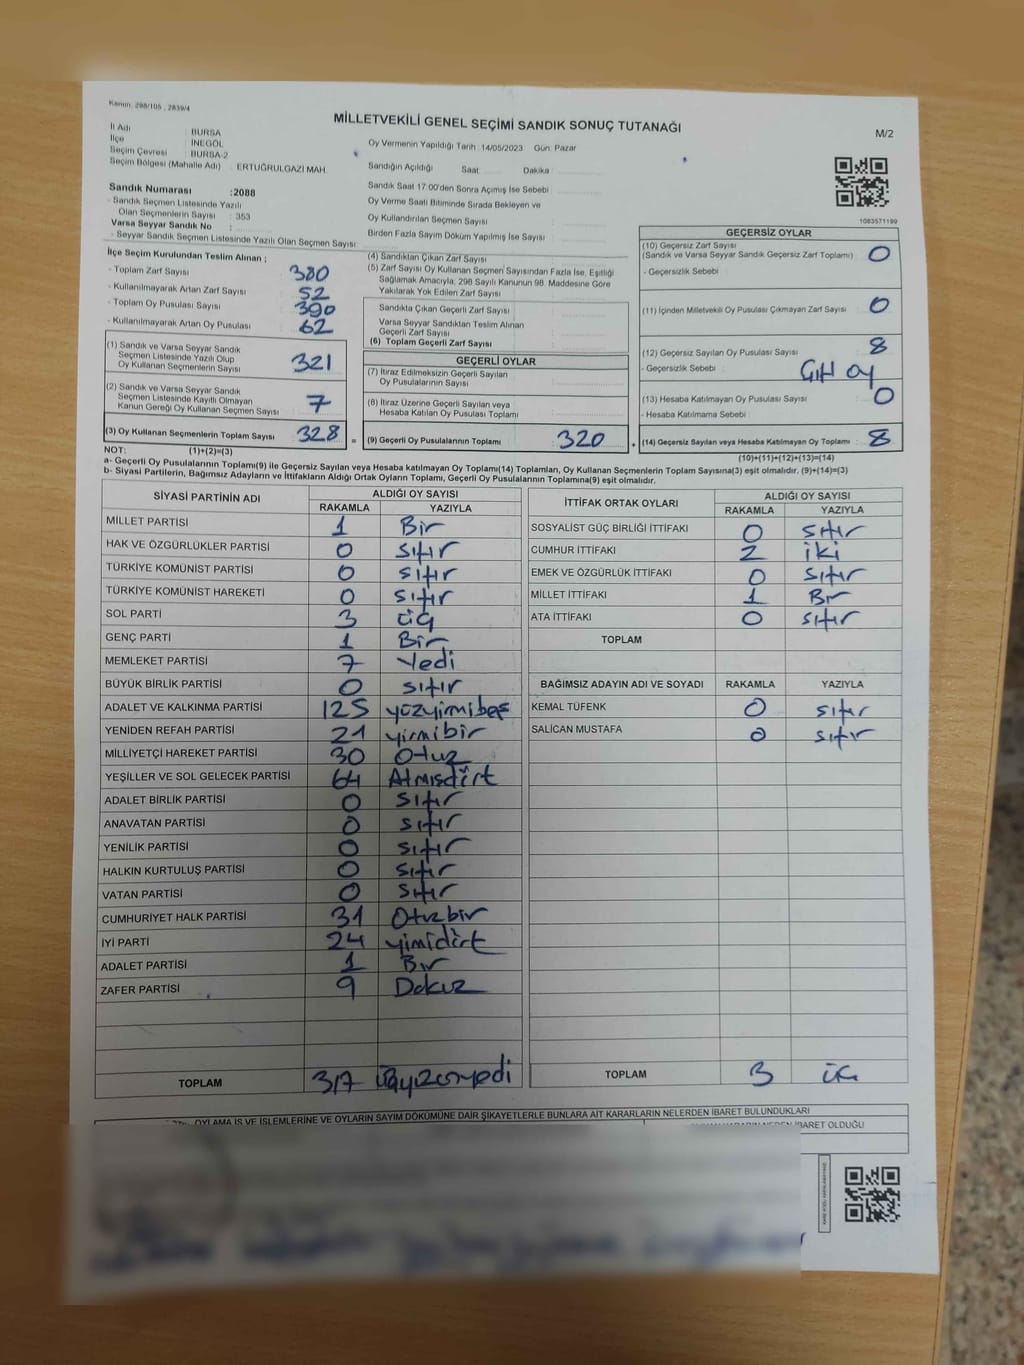 Kanun: 298/105 , 2839/4
MİLLETVEKİLİ GENEL SEÇİMİ SANDIK SONUÇ TUTANAĞI
M/2
İl Adı : BURSA
İlçe : İNEGÖL
Seçim Çevresi : BURSA-2
Seçim Bölgesi (Mahalle Adı) : ERTUĞRULGAZİ MAH.
Sandık Numarası :2088
- Sandık Seçmen Listesinde Yazılı
Olan Seçmenlerin Sayısı : 353
Varsa Seyyar Sandık No :
- Seyyar Sandık Seçmen Listesinde Yazılı Olan Seçmen Sayısı :
Oy Vermenin Yapıldığı Tarih 14/05/2023 Gün: Pazar
Sandığın Açıldığı Saat: Dakika :
Sandık Saat 17:00'den Sonra Açımış İse Sebebi :
Oy Verme Saati Bitiminde Sırada Bekleyen ve
Oy Kullandırılan Seçmen Sayısı :
Birden Fazla Sayım Döküm Yapılmış İse Sayısı :
1083571199
İlçe Seçim Kurulundan Teslim Alınan ;
- Toplam Zarf Sayısı 380
- Kullanılmayarak Artan Zarf Sayısı 52
- Toplam Oy Pusulası Sayısı 390
- Kullanılmayarak Artan Oy Pusulası 62
(1) Sandık ve Varsa Seyyar Sandık
Seçmen Listesinde Yazılı Olup
Oy Kullanan Seçmenlerin Sayısı 321
(2) Sandık ve Varsa Seyyar Sandık
Seçmen Listesinde Kayıtlı Olmayan
Kanun Gereği Oy Kullanan Seçmen Sayısı : 7
(3) Oy Kullanan Seçmenlerin Toplam Sayısı : 328 =
(4) Sandıktan Çıkan Zarf Sayısı :
(5) Zarf Sayısı Oy Kullanan Seçmen Sayısından Fazla İse, Eşitliği
Sağlamak Amacıyla, 298 Sayılı Kanunun 98. Maddesine Göre
Yakılarak Yok Edilen Zarf Sayısı :
Sandıkta Çıkan Geçerli Zarf Sayısı :
Varsa Seyyar Sandıktan Teslim Alınan
Geçerli Zarf Sayısı :
(6) Toplam Geçerli Zarf Sayısı :
GEÇERLİ OYLAR
(7) İtiraz Edilmeksizin Geçerli Sayılan
Oy Pusulalarının Sayısı :
(8) İtiraz Üzerine Geçerli Sayılan veya
Hesaba Katılan Oy Pusulası Toplamı :
(9) Geçerli Oy Pusulalarının Toplamı : 320 +
GEÇERSİZ OYLAR
(10) Geçersiz Zarf Sayısı
(Sandık ve Varsa Seyyar Sandık Geçersiz Zarf Toplamı) : 0
- Geçersizlik Sebebi :
(11) İçinden Milletvekili Oy Pusulası Çıkmayan Zarf Sayısı : 0
(12) Geçersiz Sayılan Oy Pusulası Sayısı : 8
- Geçersizlik Sebebi : Çift oy
(13) Hesaba Katılmayan Oy Pusulası Sayısı : 0
- Hesaba Katılmama Sebebi :
(14) Geçersiz Sayılan veya Hesaba Katılmayan Oy Toplamı : 8
NOT: (1)+(2)=(3)
(10)+(11)+(12)+(13)=(14)
a- Geçerli Oy Pusulalarının Toplamı(9) ile Geçersiz Sayılan veya Hesaba katılmayan Oy Toplamı(14) Toplamları, Oy Kullanan Seçmenlerin Toplam Sayısına(3) eşit olmalıdır. (9)+(14)=(3)
b- Siyasi Partilerin, Bağımsız Adayların ve İttifakların Aldığı Ortak Oyların Toplamı, Geçerli Oy Pusulalarının Toplamına(9) eşit olmalıdır.
SİYASİ PARTİNİN ADI ALDIĞI OY SAYISI
RAKAMLA YAZIYLA
MİLLET PARTİSİ 1 Bir
HAK VE ÖZGÜRLÜKLER PARTİSİ 0 sıfır
TÜRKİYE KOMÜNİST PARTİSİ 0 sıfır
TÜRKİYE KOMÜNİST HAREKETİ 0 sıfır
SOL PARTİ 3 üç
GENÇ PARTİ 1 Bir
MEMLEKET PARTİSİ 7 Yedi
BÜYÜK BİRLİK PARTİSİ 0 sıfır
ADALET VE KALKINMA PARTİSİ 125 yüzyirmibeş
YENİDEN REFAH PARTİSİ 21 yirmibir
MİLLİYETÇİ HAREKET PARTİSİ 30 Otuz
YEŞİLLER VE SOL GELECEK PARTİSİ 64 Atmışdört
ADALET BİRLİK PARTİSİ 0 sıfır
ANAVATAN PARTİSİ 0 sıfır
YENİLİK PARTİSİ 0 sıfır
HALKIN KURTULUŞ PARTİSİ 0 sıfır
VATAN PARTİSİ 0 sıfır
CUMHURİYET HALK PARTİSİ 31 Otuzbir
İYİ PARTİ 24 yimidört
ADALET PARTİSİ 1 Bir
ZAFER PARTİSİ 9 Dokuz
TOPLAM 317 üçyüzonyedi
İTTİFAK ORTAK OYLARI ALDIĞI OY SAYISI
RAKAMLA YAZIYLA
SOSYALİST GÜÇ BİRLİĞİ İTTİFAKI 0 sıfır
CUMHUR İTTİFAKI 2 iki
EMEK VE ÖZGÜRLÜK İTTİFAKI 0 sıfır
MİLLET İTTİFAKI 1 Bir
ATA İTTİFAKI 0 sıfır
TOPLAM
BAĞIMSIZ ADAYIN ADI VE SOYADI RAKAMLA YAZIYLA
KEMAL TÜFENK 0 sıfır
SALİCAN MUSTAFA 0 sıfır
TOPLAM 3
OYLAMA İŞ VE İŞLEMLERİNE VE OYLARIN SAYIM DÖKÜMÜNE DAİR ŞİKAYETLERLE BUNLARA AİT KARARLARIN NELERDEN İBARET BULUNDUKLARI
İBARET OLDUĞU